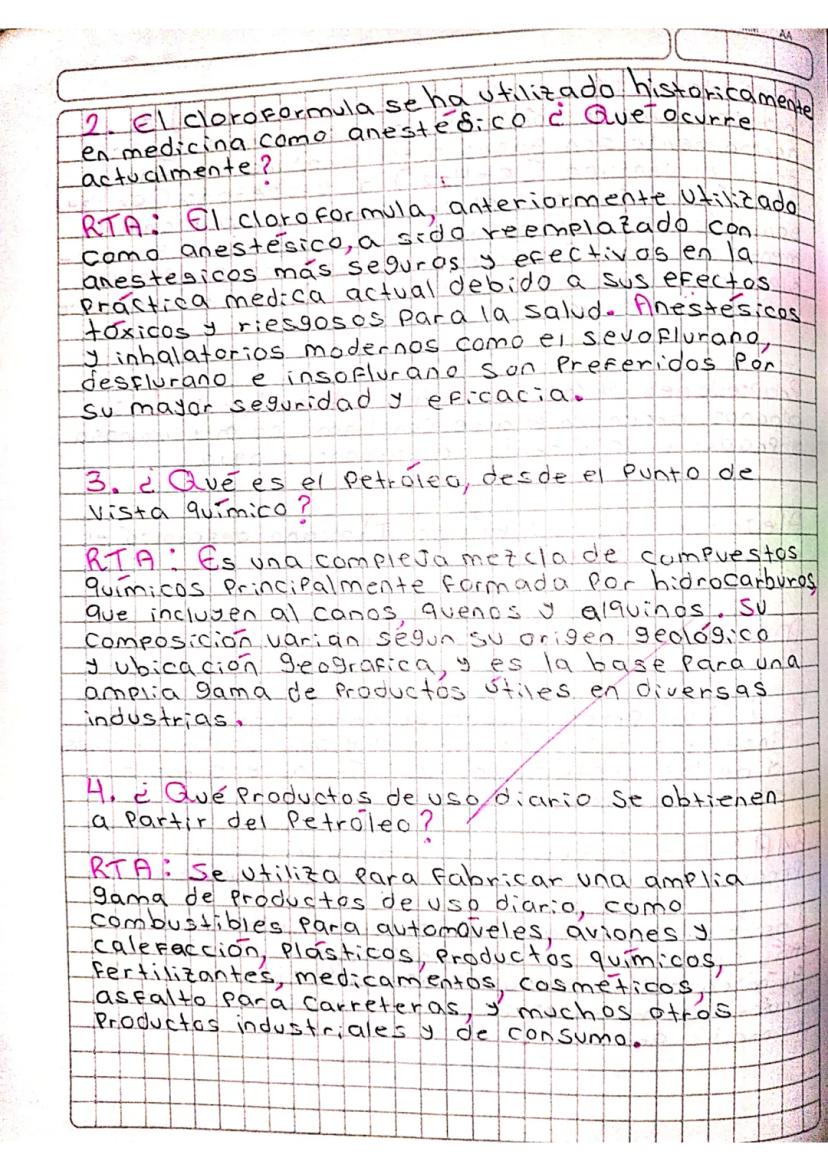 2. El cloroformula se ha utilizado historicamente
en medicina como anestésico ¿ Que ocurre
actualmente?
RTA: El cloroformula, anteriormente utilizado
como anestésico, a sido reemplazado con
anestesicos más seguros y efectivos en la
práctica medica actual debido a sus efectos
tóxicos y riesgosos para la salud. Anestésicos
y inhalatorios modernos como el sevoflurano,
desflurano e insoflurano son preferidos por
su mayor seguridad y eficacia.
3. ¿ Qué es el petróleo, desde el punto de
vista químico?
RTA: Es una compleja mezcla de compuestos
químicos principalmente formada por hidrocarburos
que incluyen al canos, quenos y alquinos. Su
composición varian según su origen geológico
y ubicación geografica, y es la base para una
amplia gama de productos útiles en diversas
industrias.
4. ¿ Qué productos de uso diario se obtienen
a partir del petróleo?
RTA: Se utiliza para fabricar una amplia
gama de productos de uso diario, como
combustibles para automóveles, aviones y
calefacción, plásticos, productos químicos,
fertilizantes, medicamentos, cosméticos,
asfalto para carreteras, y muchos otros
productos industriales y de consumo.